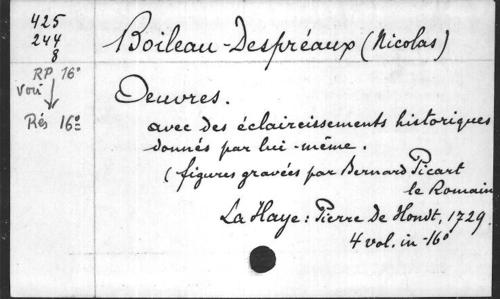 425
244
8
Boileau-Despréaux (Nicolas)
RP 16°
voir
Rés 16°
Oeuvres.
avec des éclaircissements historiques
donnés par lui-même.
(figures gravées par Bernard Picart
le Romain
La Haye: Pierre De Hondt, 1729.
4 vol. in-16°